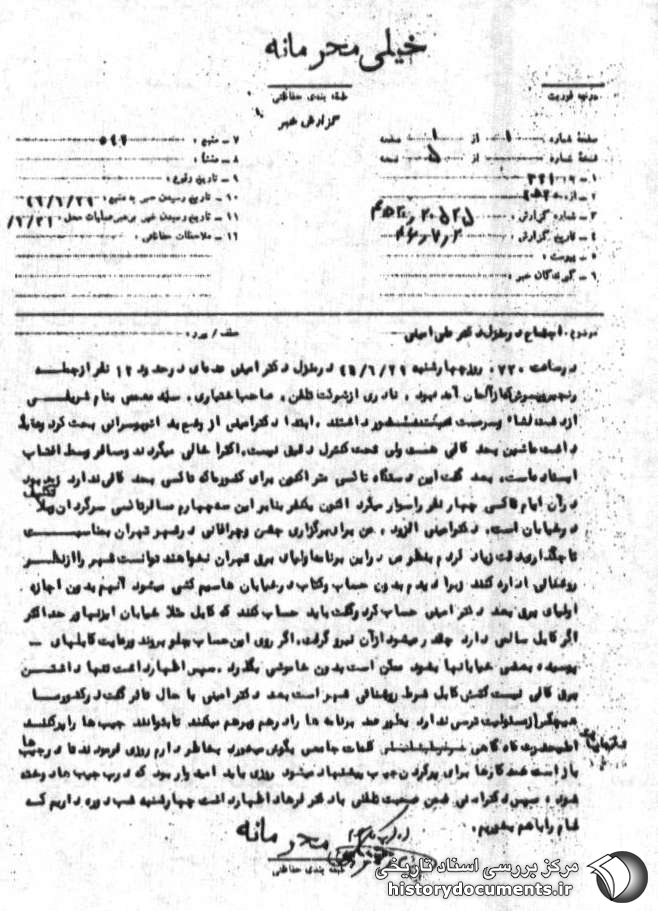 خیلی محرمانه
طبقه بندی حفاظتی
درجه فوریت
گزارش خبر
صفحه شماره ۱ از ۱ صفحه
نسخه شماره از ۵ نسخه
۱ - به ۳۲۱
۲ - از
۳ - شماره گزارش
۴ - تاریخ گزارش ۴۶٫۷٫۲
۵ - پیوست
۶ - گیرندگان خبر
۷ - منبع
۸ - منشأ
۹ - تاریخ وقوع
۱۰ - تاریخ رسیدن خبر به منبع ۴۶/۶/۲۹
۱۱ - تاریخ رسیدن خبر به رهبر عملیات محل
۱۲ - ملاحظات حفاظتی
موضوع: اجتماع در منزل دکتر علی امینی
عطف / پیرو
در ساعت روز چهارشنبه ۴۶/۶/۲۹ در منزل دکتر امینی عده‌ای در حدود ۱۲ نفر از جمله
آمده بود، نادری از شرکت تلفن، صاحب اختیاری، سید معممی بنام شریفی
داشتند. ابتدا دکتر امینی از وضع بد اتوبوسرانی بحث کرد و
داشت ماشین بحد کافی هست ولی تحت کنترل دقیق نیست. اکثرا خالی میگردند و مسافر وسط آفتاب
ایستاده است. بعد گفت این دستگاه تاکسی متر اکنون برای کشور ما که تاکسی بحد کافی ندارد زود بود
در آن ایام تاکسی چهار نفر را سوار میکرد اکنون یکنفر بنابر این سه چهارم مسافر تاکسی سرگردان و بلاتکلیف
در خیابان است. دکتر امینی افزود، من برای برگزاری جشن و چراغانی در شهر تهران بمناسبت
تاجگذاری دقت زیاد کردم بنظر من در این برنامه اولیای برق تهران نخواهند توانست شهر را از نظر
روشنائی اداره کنند زیرا دیدم بدون حساب و کتاب در خیابان ها سیم کشی میشود آنهم بدون اجازه
اولیای برق بعد دکتر امینی حساب کرد و گفت باید حساب کنند که کابل مثلا خیابان ایزنهاور حداکثر
اگر کابل سالمی دارد چقدر میشود از آن نیرو گرفت. اگر روی این حساب جلو بروند و رعایت کابلهای
پوسیده بعضی خیابانها بشود ممکن است بدون خاموشی بگذرد. سپس اظهار داشت تنها داشتن
برق کافی نیست کشش کابل شرط روشنائی شهر است بعد دکتر امینی با حال تاثر گفت در کشور ما
هیچکس از مسئولیت ترسی ندارد بطور عمد برنامه ها را درهم و برهم میکنند تا بتوانند جیب ها را پر کنند
گاهی کلمات جامعی بگوش میخورد بخاطر دارم روزی فرمودند تا در جیب ها
باز است عمد کارها برای پر کردن جیب پیشنهاد میشود روزی باید امیدوار بود که درب جیب ها دوخته
شود، سپس دکتر امینی ضمن صحبت تلفنی با دکتر فرهاد اظهار داشت چهارشنبه شب دوره داریم که
شام را با هم بخوریم.
محرمانه
طبقه بندی حفاظتی
مرکز بررسی اسناد تاریخی
historydocuments.ir